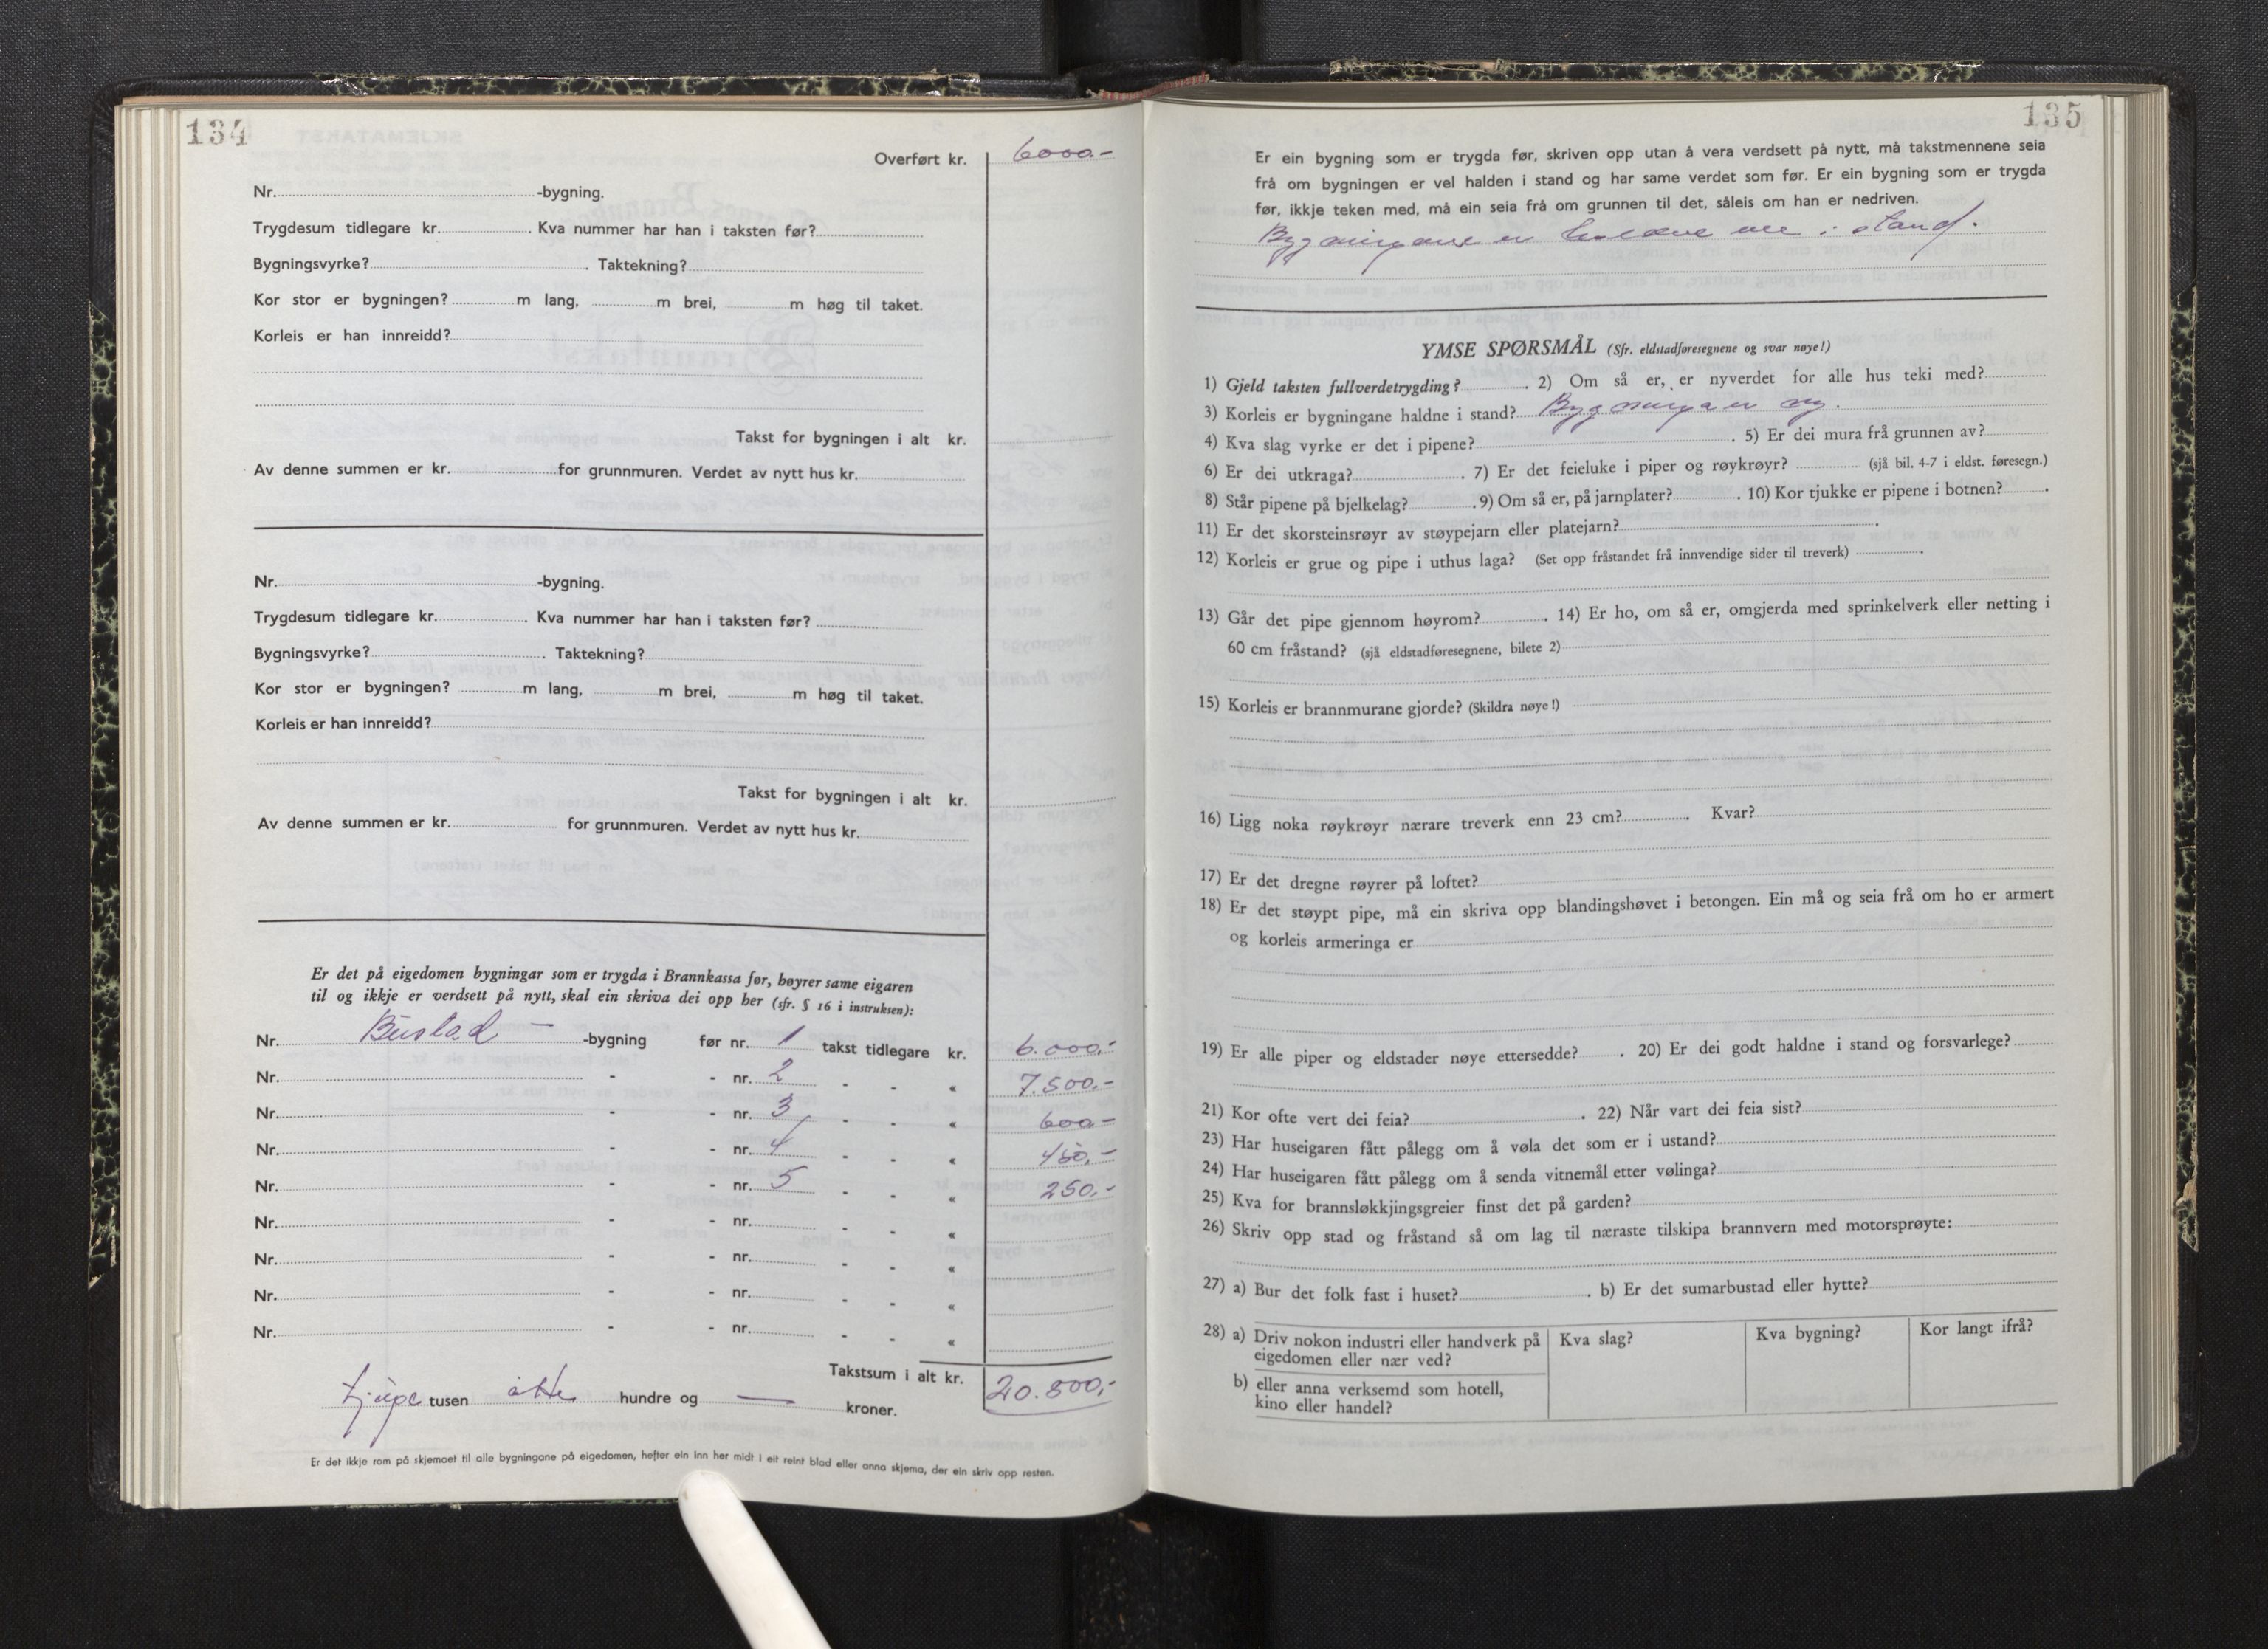 134
Overført kr. 6000.-
Nr. -bygning.
Trygdesum tidlegare kr. . Kva nummer har han i taksten før?
Bygningsvyrke? . Taktekning?
Kor stor er bygningen? m lang, m brei, m høg til taket.
Korleis er han innreidd?
Takst for bygningen i alt kr.
Av denne summen er kr. for grunnmuren. Verdet av nytt hus kr.
Nr. -bygning.
Trygdesum tidlegare kr. . Kva nummer har han i taksten før?
Bygningsvyrke? . Taktekning?
Kor stor er bygningen? m lang, m brei, m høg til taket.
Korleis er han innreidd?
Takst for bygningen i alt kr.
Av denne summen er kr. for grunnmuren. Verdet av nytt hus kr.
Er det på eigedomen bygningar som er trygda i Brannkassa før, høyrer same eigaren
til og ikkje er verdsett på nytt, skal ein skriva dei opp her (sfr. § 16 i instruksen):
Nr. Bustad - -bygning før nr. 1 takst tidlegare kr. 6.000.-
Nr. - - nr. 2 - - « 7.500.-
Nr. - - nr. 3 - - « 600-
Nr. - - nr. 4 - - « 450.-
Nr. - - nr. 5 - - « 250.-
Nr. - - nr. - - «
Nr. - - nr. - - «
Nr. - - nr. - - «
Nr. - - nr. - - «
Takstsum i alt kr. 20.800,-
tjuge tusen åtte hundre og — kroner.
Er det ikkje rom på skjemaet til alle bygningane på eigedomen, hefter ein inn her midt i eit reint blad eller anna skjema, der ein skriv opp resten.
135
Er ein bygning som er trygda før, skriven opp utan å vera verdsett på nytt, må takstmennene seia
frå om bygningen er vel halden i stand og har same verdet som før. Er ein bygning som er trygda
før, ikkje teken med, må ein seia frå om grunnen til det, såleis om han er nedriven.
Bygningane er i stand.
YMSE SPØRSMÅL (Sfr. eldstadføresegnene og svar nøye!)
1) Gjeld taksten fullverdetrygding? . 2) Om så er, er nyverdet for alle hus teki med?
3) Korleis er bygningane haldne i stand? Bygninga er ny.
4) Kva slag vyrke er det i pipene? . 5) Er dei mura frå grunnen av?
6) Er dei utkraga? . 7) Er det feieluke i piper og røykrøyr? (sjå bil. 4-7 i eldst. føresegn.)
8) Står pipene på bjelkelag? . 9) Om så er, på jarnplater? . 10) Kor tjukke er pipene i botnen? .
11) Er det skorsteinsrøyr av støypejarn eller platejarn? .
12) Korleis er grue og pipe i uthus laga? (Set opp fråstandet frå innvendige sider til treverk) .
13) Går det pipe gjennom høyrom? . 14) Er ho, om så er, omgjerda med sprinkelverk eller netting i
60 cm fråstand? (sjå eldstadføresegnene, bilete 2)
15) Korleis er brannmurane gjorde? (Skildra nøye!)
16) Ligg noka røykrøyr nærare treverk enn 23 cm? . Kvar?
17) Er det dregne røyrer på loftet?
18) Er det støypt pipe, må ein skriva opp blandingshøvet i betongen. Ein må og seia frå om ho er armert
og korleis armeringa er
19) Er alle piper og eldstader nøye ettersedde? . 20) Er dei godt haldne i stand og forsvarlege?
21) Kor ofte vert dei feia? . 22) Når vart dei feia sist?
23) Har huseigaren fått pålegg om å vøla det som er i ustand?
24) Har huseigaren fått pålegg om å senda vitnemål etter vølinga?
25) Kva for brannsløkkjingsgreier finst det på garden?
26) Skriv opp stad og fråstand så om lag til næraste tilskipa brannvern med motorsprøyte:
27) a) Bur det folk fast i huset? . b) Er det sumarbustad eller hytte?
28) a) Driv nokon industri eller handverk på Kva slag? Kva bygning? Kor langt ifrå?
eigedomen eller nær ved?
b) eller anna verksemd som hotell,
kino eller handel?